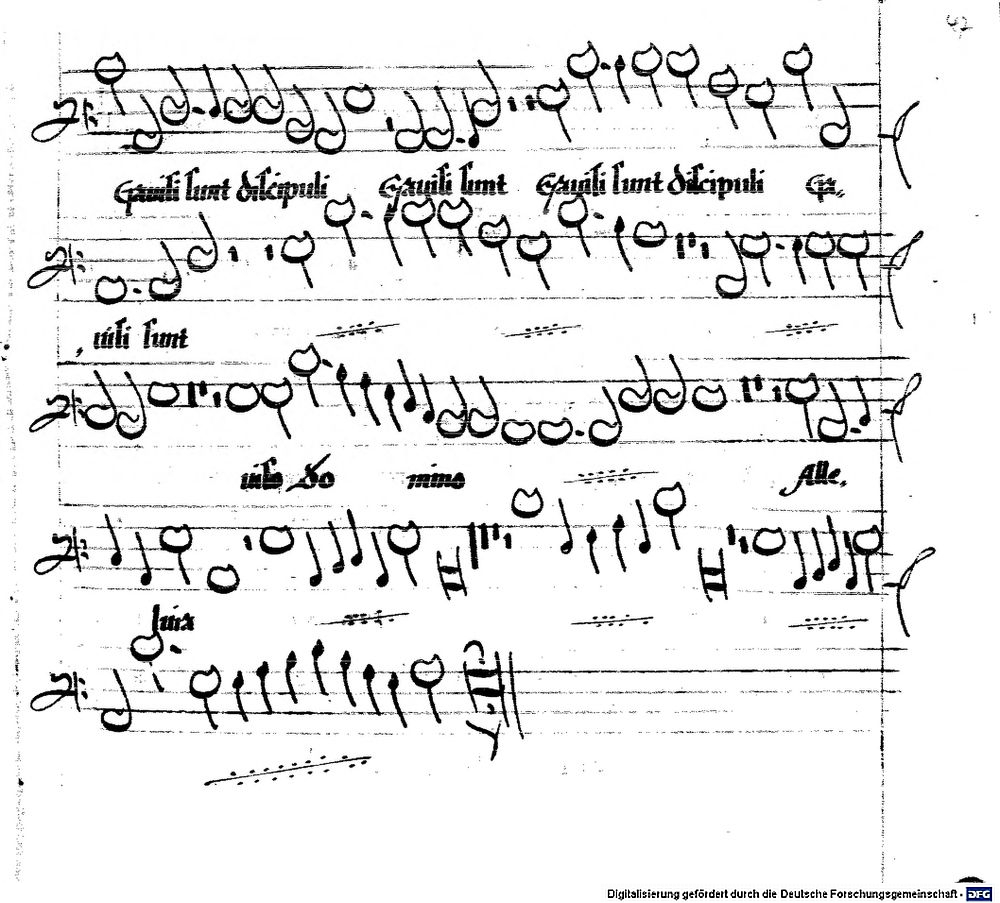 47
Gauisi sunt discipuli Gauisi sunt Gauisi sunt discipuli Ga,
, uisi sunt
uiso Do mino Alle,
luia
Digitalisierung gefördert durch die Deutsche Forschungsgemeinschaft - DFG